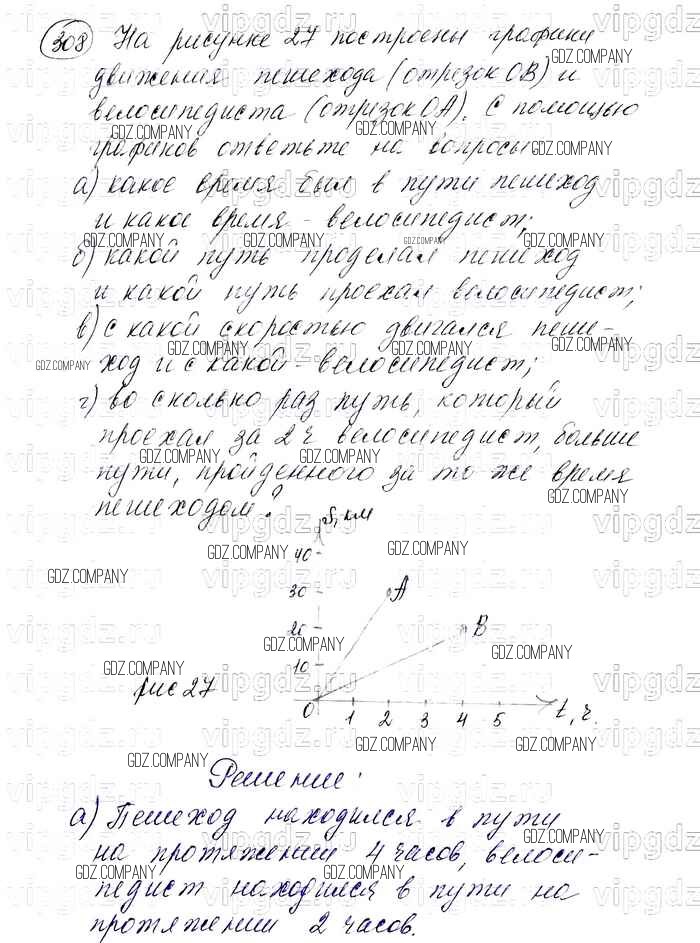 308 На рисунке 27 построены графики
движения пешехода (отрезок OB) и
велосипедиста (отрезок OA). С помощью
графиков ответьте на вопросы:
а) какое время был в пути пешеход
и какое время - велосипедист;
б) какой путь проделал пешеход
и какой путь проехал велосипедист;
в) с какой скоростью двигался пеше-
ход и с какой - велосипедист;
г) во сколько раз путь, который
проехал за 2 ч велосипедист, больше
пути, пройденного за то же время
пешеходом?
S, км
40
30 A
20 B
10
рис 27
0 1 2 3 4 5 t, ч.
Решение:
а) Пешеход находился в пути
на протяжении 4 часов, велоси-
педист находился в пути на
протяжении 2 часов.
GDZ.COMPANY
vipgdz.ru